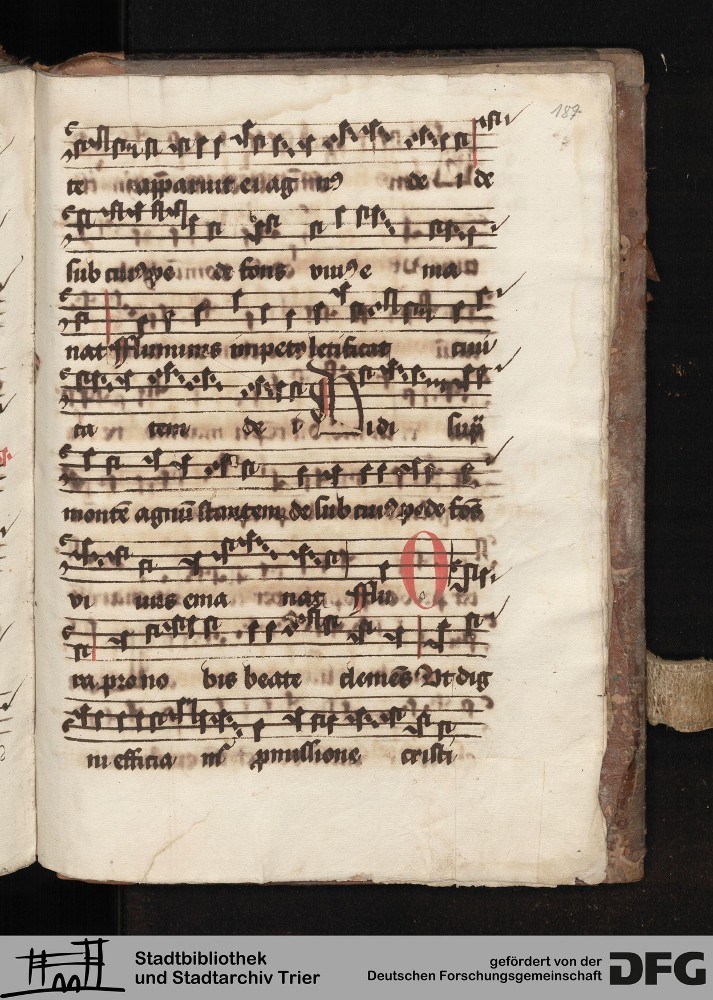 187
te apparuit ei agnus de
sub cuius pede fons vivus e ma
nat fluminis impetus letificat civi
ta tem de i Vidi supra
monte agnū stantem de sub cuius pede fōs
vi vus ema nat Flu O
ra pro no bis beate clemēs Ut dig
ni efficia mur promissione cristi
Stadtbibliothek
und Stadtarchiv Trier
gefördert von der
Deutschen Forschungsgemeinschaft
DFG